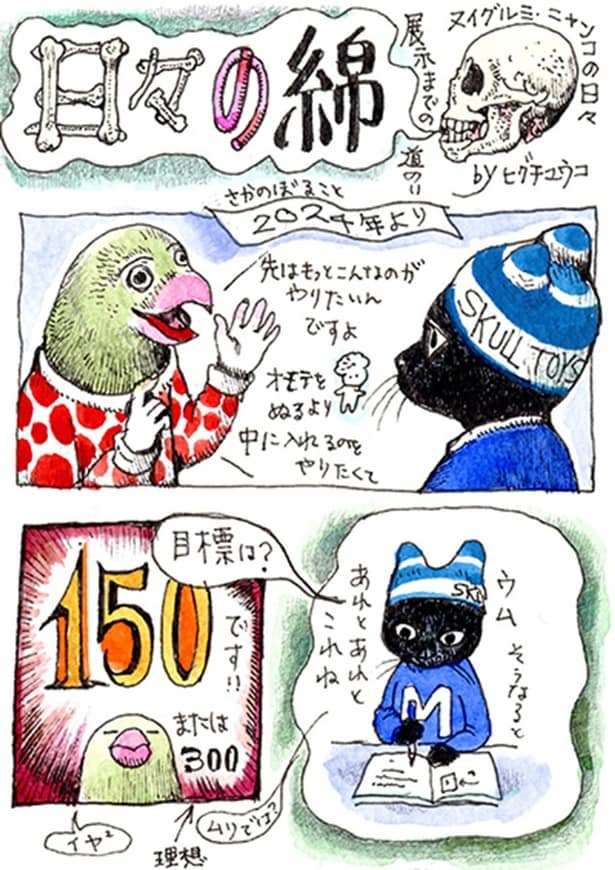 日々の綿
展示までの
道のり
ヌイグルミ・ニャンコの日々
by ヒグチユウコ
さかのぼること
2024年より
先はもっとこんなのが
やりたいん
ですよ
オモテを
ぬるより
中に入れるのを
やりたくて
SKULL TOYS
目標は?
150
です!!
または
300
イヤ²
理想
ムリでは?
ウム そうなると
あれとあれと
これね
SKU
M